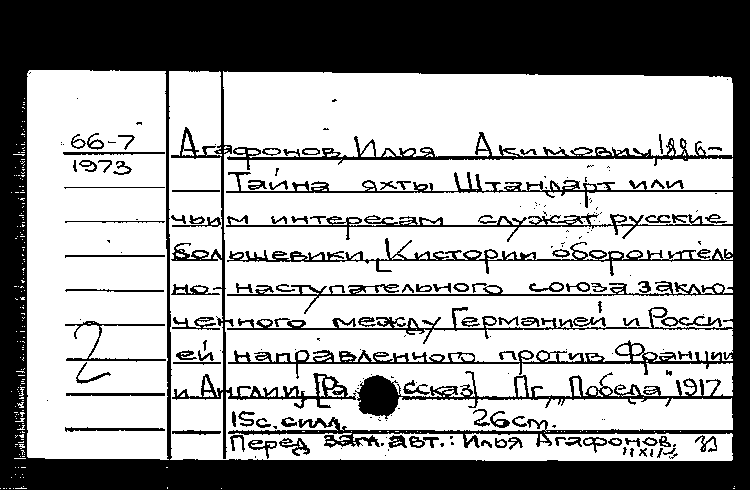 66-7
1973
Агафонов, Илья Акимович, 1886-
Тайна яхты Штандарт или
чьим интересам служат русские
большевики. [К истории оборонитель
но-наступательного союза заклю-
ченного между Германией и Росси-
ей направленного против Франции
и Англии]. [Ра ссказ] Пг., "Победа", 1917
15с. с илл. 26 см.
2
Перед загл. авт.: Илья Агафонов.